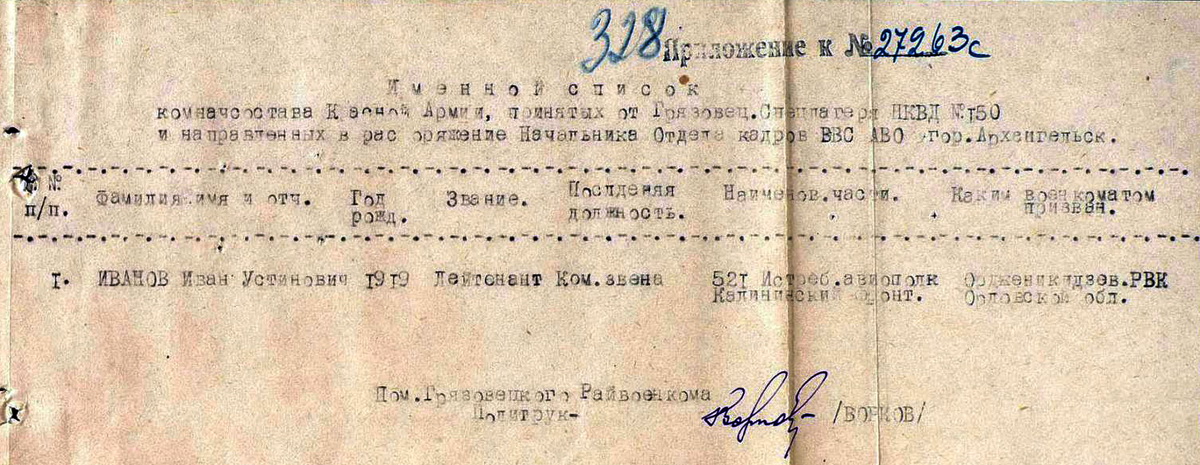 328 Приложение к № 27263с
Именной список
комначсостава Красной Армии, принятых от Грязовец.Спецлагеря НКВД №150
и направленных в рас оряжение Начальника Отдела кадров ВВС АВО гор.Архангельск.
№ №
п/п. Фамилия.имя и отч. Год рожд. Звание. Послденяя должность. Наименов.части. Каким военкоматом призван.
1. ИВАНОВ Иван Устинович 1919 Лейтенант Ком.звена 521 Истреб.авиополк Ордженикидзев.РВК
Калининский фронт. Орловской обл.
Пом.Грязовецкого Райвоенкома
Политрук- /ВОРКОВ/